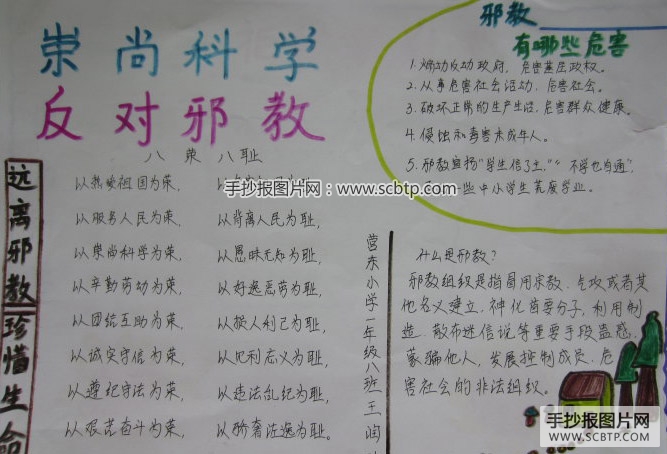 崇尚科学
反对邪教
八荣八耻
以热爱祖国为荣，
以服务人民为荣， 以背离人民为耻，
以崇尚科学为荣， 以愚昧无知为耻，
以辛勤劳动为荣， 以好逸恶劳为耻，
以团结互助为荣， 以损人利己为耻，
以诚实守信为荣， 以见利忘义为耻，
以遵纪守法为荣， 以违法乱纪为耻，
以艰苦奋斗为荣， 以骄奢淫逸为耻。
远离邪教 珍惜生命
营东小学一年级八班王润
邪教
有哪些危害
1. 煽动反动政府，危害基层政权。
2. 从事危害社会活动，危害社会。
3. 破坏正常的生产生活，危害群众健康。
4. 侵蚀和毒害未成年人。
5. 邪教宣扬“学生信了主”“不学也内通”，
一些中小学生荒废学业。
什么是邪教？
邪教组织是指冒用宗教、气攻或者其
他名义建立、神化首要分子，利用制
造、散布迷信说等重要手段蛊惑、
蒙骗他人，发展控制成员、危
害社会的非法组织。
手抄报图片网：www.scbtp.com
手抄报图片网
WWW.SCBTP.COM